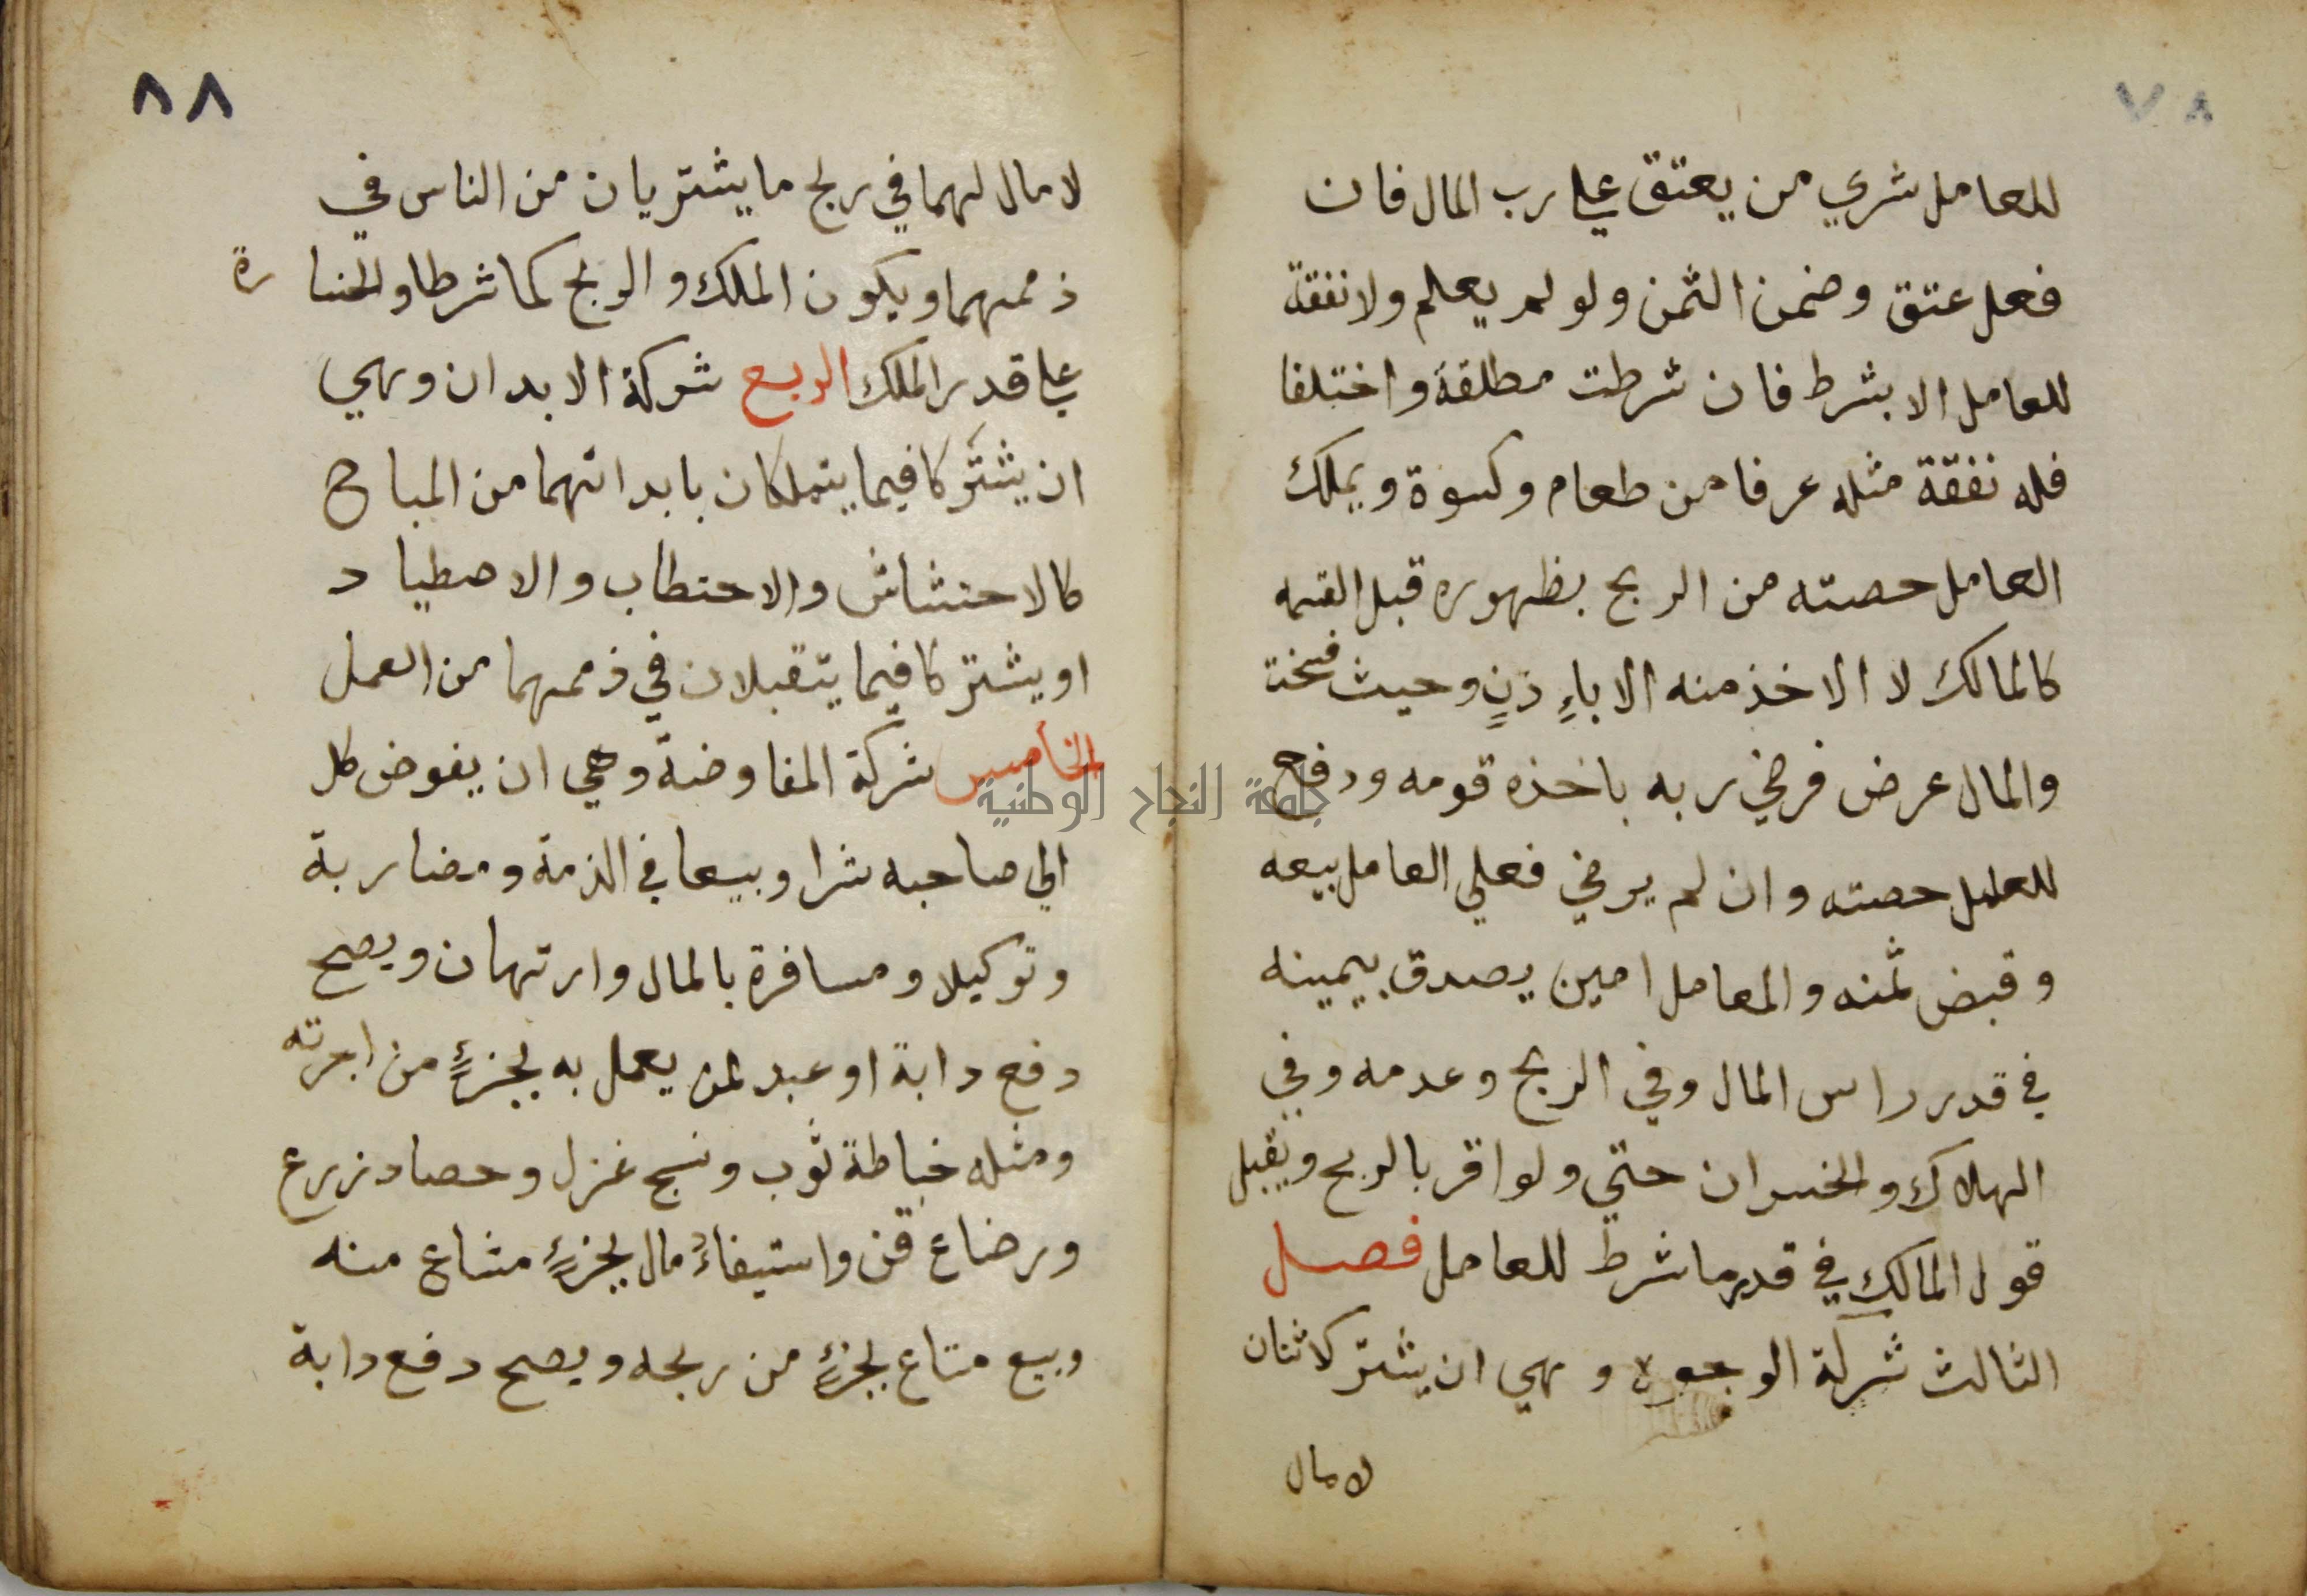 ٨٧
للعامل شري من يعتق علي رب المال فان
فعل عتق وضمن الثمن ولو لم يعلم ولا نفقة
للعامل الا بشرط فان شرطت مطلقة واختلفا
فله نفقة مثله عرفا من طعام وكسوة ويملك
العامل حصته من الربح بظهوره قبل القسمه
كالمالك لا الاخذ منه الا باءِذنٍ وحيث فسخت
والمال عرض فرضي ربه باخذه قومه ودفع
للعامل حصته وان لم يرضي فعلي العامل بيعه
وقبض ثمنه والمعامل امين يصدق بيمينه
في قدر راس المال وفي الربح وعدمه وفي
الهلاك والخسران حتي ولو اقر بالربح ويقبل
قول المالك في قدر ما شرط للعامل فصل
الثالث شركة الوجوه وهي ان يشتركا اثنان
لا مال
٨٨
لا مال لهما في ربح ما يشتريان من الناس في
ذممهما ويكون الملك والربح كما شرطا والخسارة
علي قدر الملك الربع شركة الابدان وهي
ان يشتركا فيما يتملكان بابدانهما من المباح
كالاحتشاش والاحتطاب والاصطياد
او يشتركا فيما يتقبلان في ذممهما من العمل
الخامس شركة المفاوضة وهي ان يفوض كل
الي صاحبه شرا وبيعا في الذمة ومضاربة
وتوكيلا ومسافرة بالمال وارتهان ويصح
دفع دابة او عبد لمن يعمل به بجزءٍ من اجرته
ومثله خياطة ثوب ونسج غزل وحصاد زرع
ورضاع قن واستيفاءُ مال بجزءٍ مشاع منه
وبيع متاع بجزءٍ من ربحه ويصح دفع دابة
جامعة النجاح الوطنية